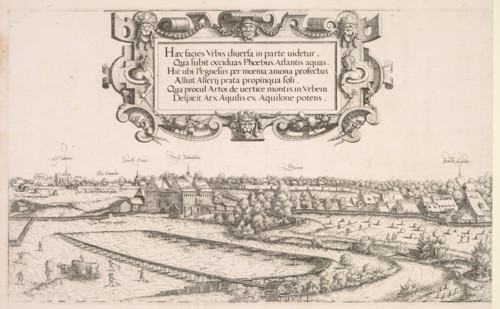 Hæc facies Vrbis diuersa in parte uidetur.
Quà subit occiduas Phœbus Atlantis aquas.
Hic ubi Pegnesus per moenia amœna profectus
Alluit Allerij prata propinqua soli.
Qua procul Artoi de uertice montis in Vrbem
Despicit Arx Aquilis ex Aquilone potens.